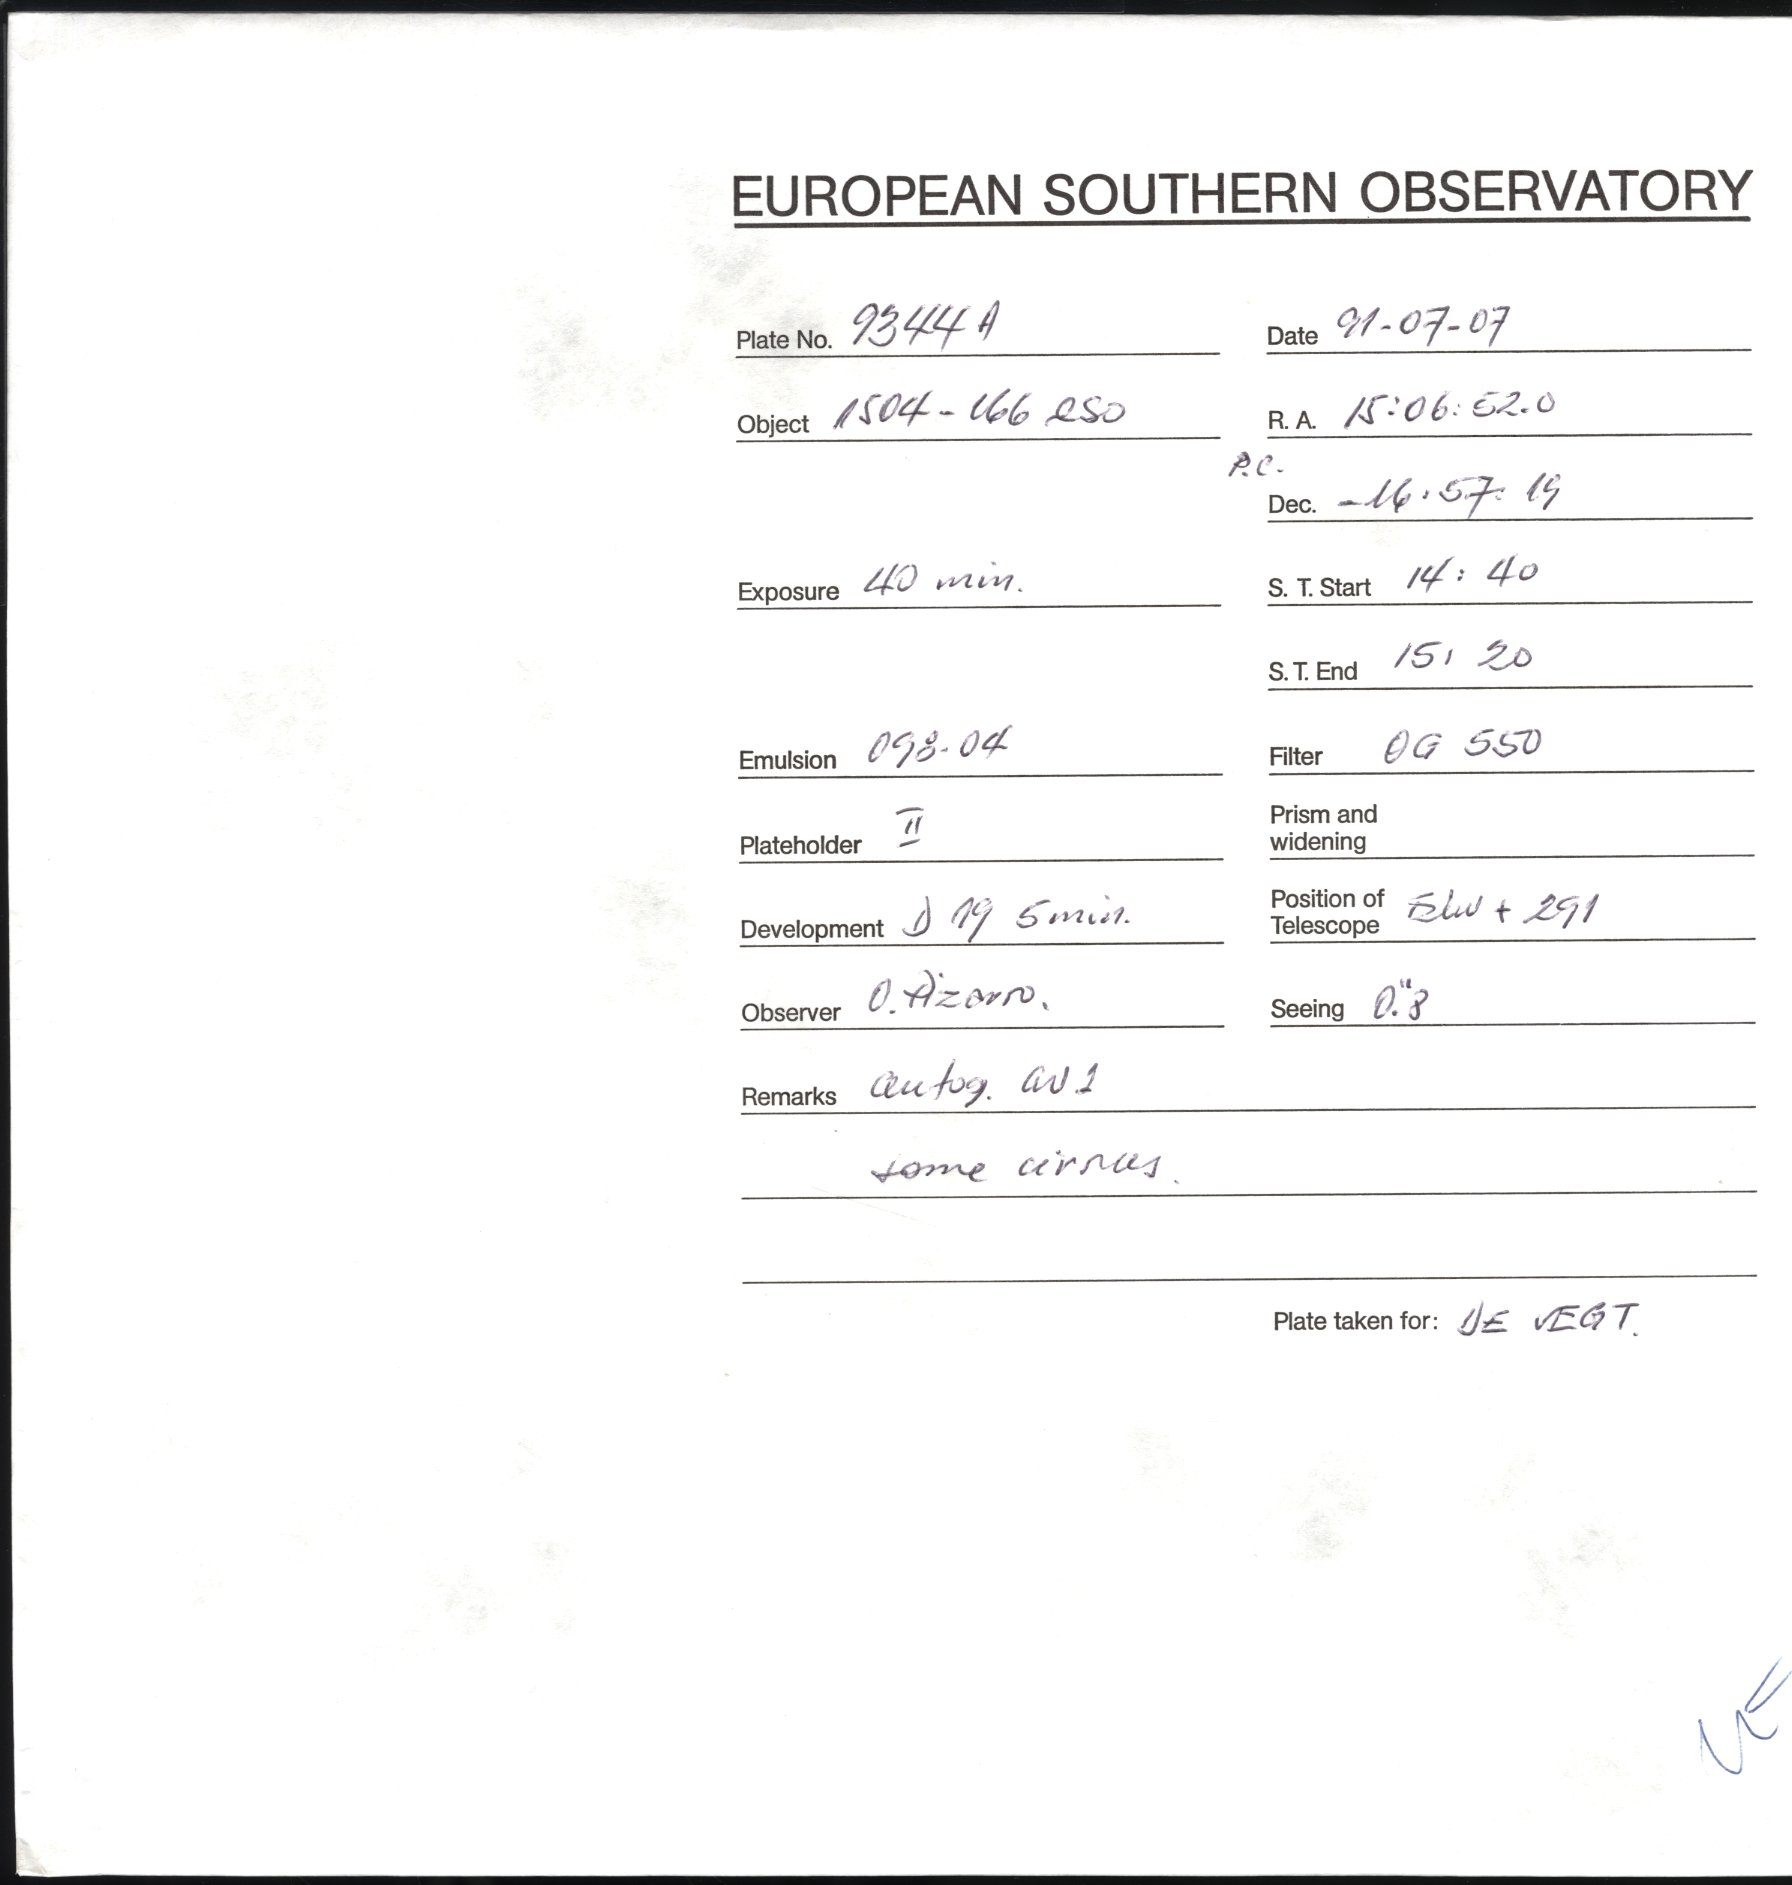 EUROPEAN SOUTHERN OBSERVATORY
Plate No. 9344 A
Date 91-07-07
Object 1504-166 ESO
R. A. 15:06:52.0
P.C.
Dec. -16:57:19
Exposure 40 min.
S. T. Start 14:40
S. T. End 15:20
Emulsion 098-04
Filter OG 550
Plateholder II
Prism and
widening
Development D 19 5 min.
Position of
Telescope + 291
Observer O. Pizarro.
Seeing 0."8
Remarks autog.
some cirrus.
Plate taken for: DE VEGT.